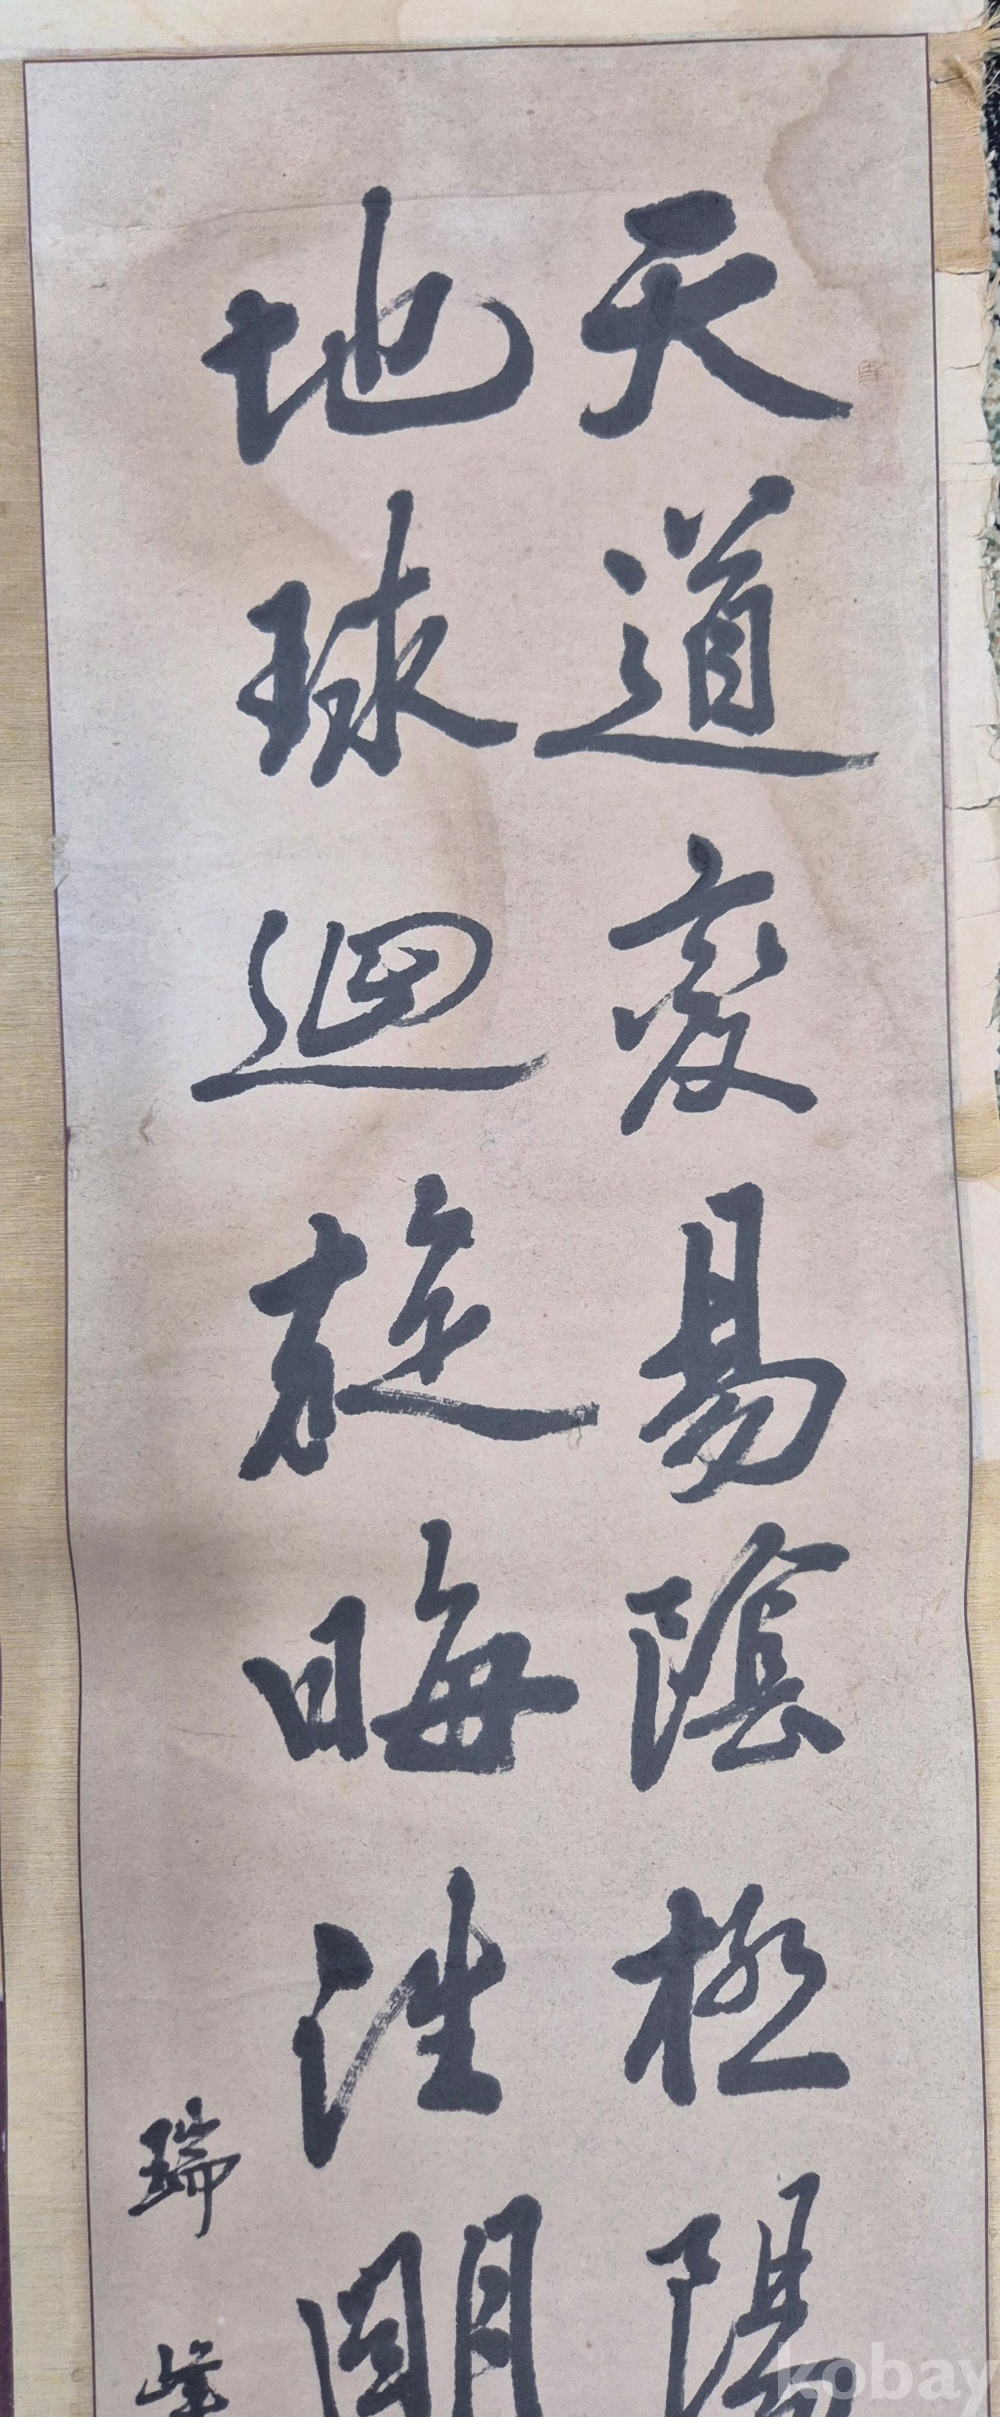 天道變易陰極陽
地球迴旋晦往明
瑞峰
kobay